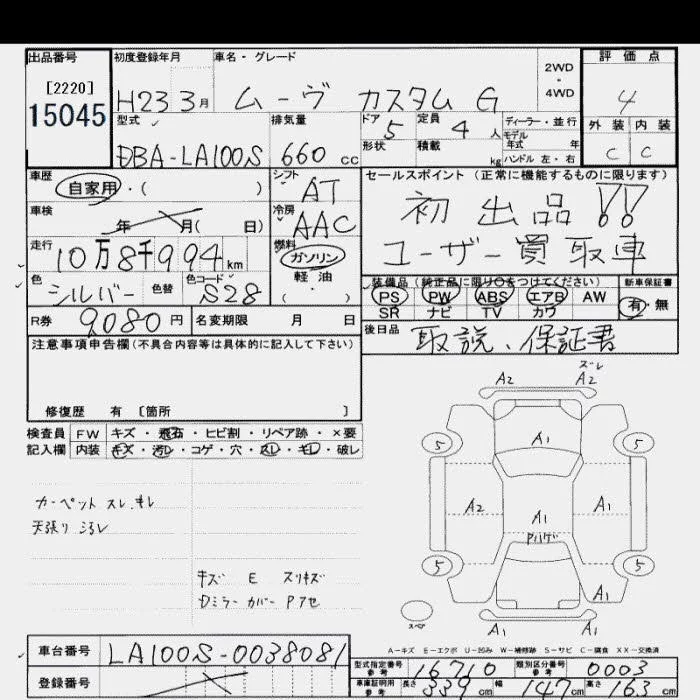 出品番号 初度登録年月 車名・グレード 2WD・4WD 評価点
[2220]
15045
H23 3月 ムーヴ カスタム G 4
型式 排気量 ドア 定員 ディーラー・並行 外装 内装
DBA-LA100S 660 cc 5 4人 モデル年式 年 C C
形状 積載 kg ハンドル 左・右
車歴 シフト セールスポイント (正常に機能するものに限ります)
自家用・( ) AT
初出品!!
車検 冷房
年 月( 日) AAC
ユーザー買取車
走行 燃料
10万8千994km ガソリン
軽・油
( )
色 色替 色コード
シルバー S28
装備品 (純正品に限り○をつけてください) 新車保証書
PS PW ABS エアB AW 有・無
SR ナビ TV カワ
R券 9080円 名変期限 月 日
後日品 取説、保証書
注意事項申告欄(不具合内容等は具体的に記入して下さい)
修復歴 有 [箇所 ]
検査員 FW キズ・飛石・ヒビ割・リペア跡・×要
記入欄 内装 キズ・汚レ・コゲ・穴・スレ・キレ・破レ
カーペット スレ、キレ
天張り ヨゴレ
キズ E スリキズ
Dミラーカバー Pアセ
ズレ
A2 A2
A1
5 5
A2 A1 A1
Pハゲ
5 5
A1
A1 A1
スペア
A-キズ E-エクボ U-凹み W-補修跡 S-サビ C-腐食 XX-交換済
車台番号 LA100S-0038081
登録番号
型式指定番号 参考 16710 類別区分番号 参考 0003
車庫証明用 参考 長さ 339cm 幅 147cm 高さ 163cm